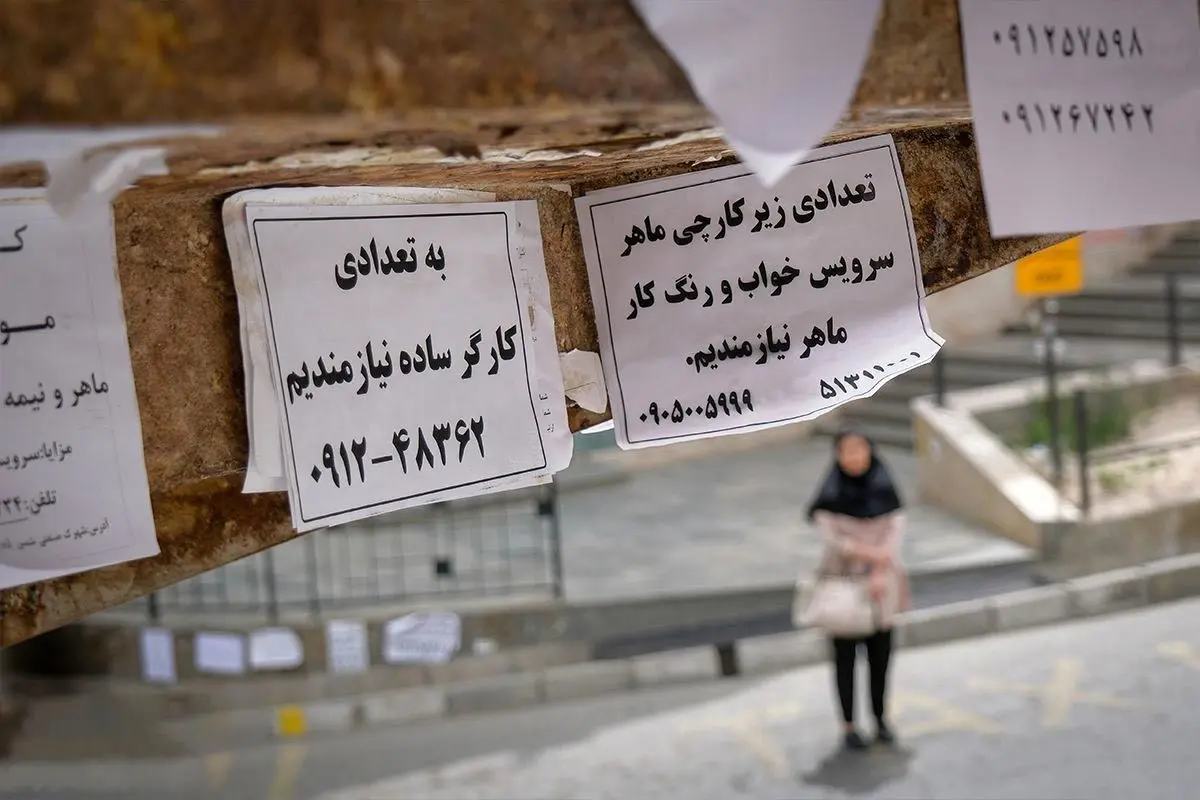 به تعدادی
کارگر ساده نیازمندیم
۰۹۱۲-۴۸۳۶۲
تعدادی زیر کارچی ماهر
سرویس خواب و رنگ کار
ماهر نیازمندیم.
۰۹۰۵۰۰۵۹۹۹
۵۱۳۱۱۰۰۱
۰۹۱۲۵۷۵۹۸
۰۹۱۲۶۷۲۴۲
ماهر و نیمه
مزایا:سرویس
تلفن:
آدرس:شهرک صنعتی شمس